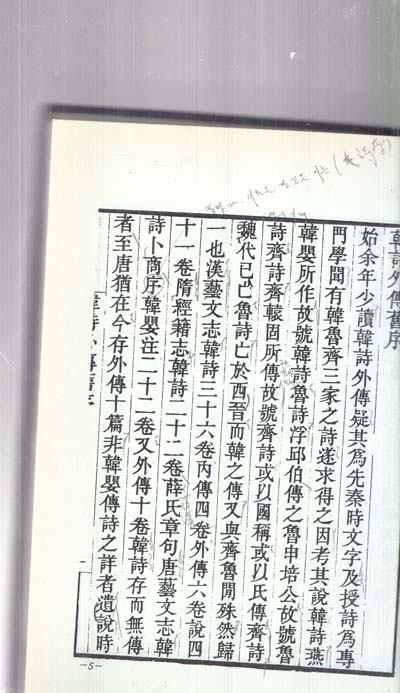 韓詩外傳舊序
始余年少讀韓詩外傳疑其爲先秦時文字及授詩爲專
門學聞有韓魯齊三家之詩遂求得之因考其說韓詩燕
韓嬰所作故號韓詩魯詩浮邱伯傳之魯申培公故號魯
詩齊詩齊轅固所傳故號齊詩或以國稱或以氏傳齊詩
魏代已亡魯詩亡於西晉而韓之傳又與齊魯閒殊然歸
一也漢藝文志韓詩三十六卷內傳四卷外傳六卷說四
十一卷隋經籍志韓詩二十二卷薛氏章句唐藝文志韓
詩卜商序韓嬰注二十二卷又外傳十卷韓詩存而無傳
者至唐猶在今存外傳十篇非韓嬰傳詩之詳者遺說時
一
-5-